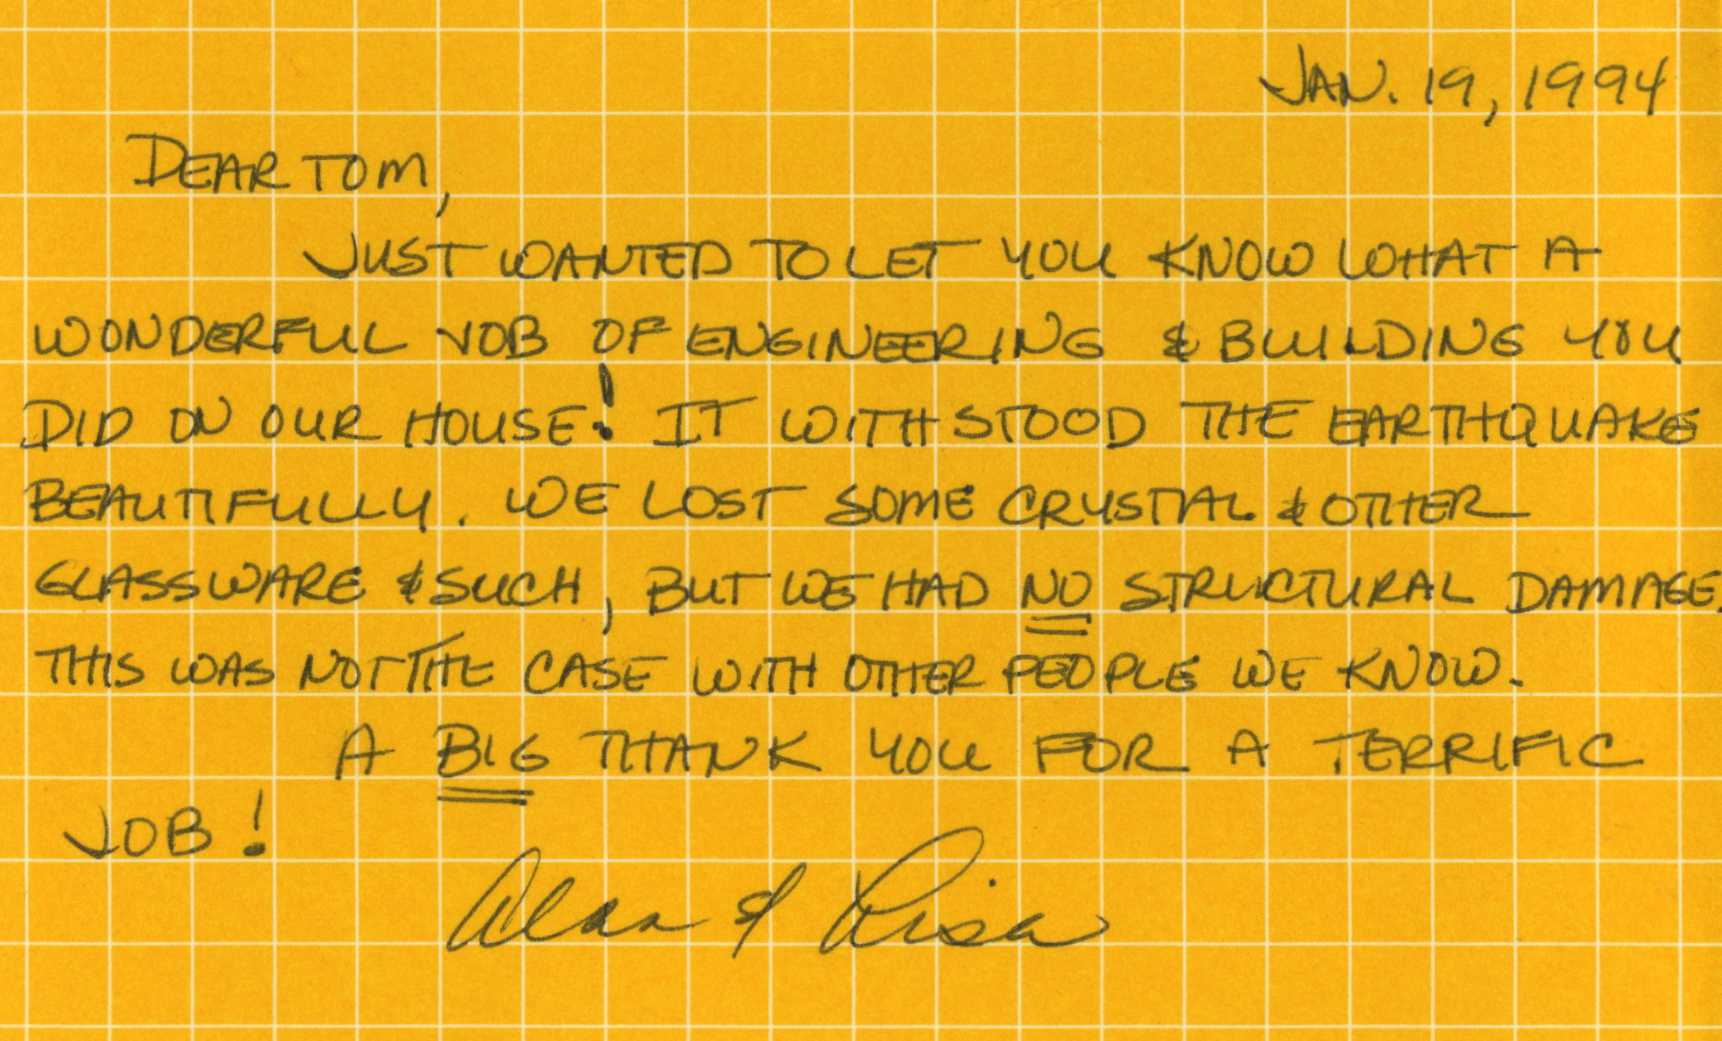 JAN. 19, 1994
DEAR TOM,
JUST WANTED TO LET YOU KNOW WHAT A
WONDERFUL JOB OF ENGINEERING & BUILDING YOU
DID ON OUR HOUSE! IT WITHSTOOD THE EARTHQUAKE
BEAUTIFULLY. WE LOST SOME CRYSTAL & OTHER
GLASSWARE & SUCH, BUT WE HAD NO STRUCTURAL DAMAGE.
THIS WAS NOT THE CASE WITH OTHER PEOPLE WE KNOW.
A BIG THANK YOU FOR A TERRIFIC
JOB!
Alan & Risa